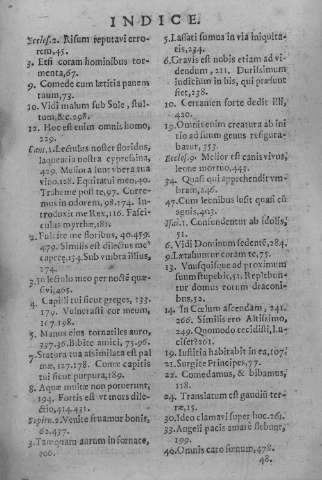 INDICE.
Eccles. 2. Risum reputavi erro-
rem, 45.
3. Esti coram hominibus tor-
menta, 67.
9. Comede cum lætitia panem
tuum, 73.
10. Vidi malum sub Sole, stul-
tum, &c. 298.
12. Hoc est enim omnis homo,
229.
Cant. 1. Lectulus noster floridus,
laquearia nostra cypressina,
429. Meliora sunt ubera tua
vino, 128. Equitatui meo, 40.
Trahe me post te, 97. Curre-
mus in odorem, 98. 174. In-
troduxit me Rex, 116. Fasci-
culus myrrhæ, 181.
2. Fulcite me floribus, 40. 459.
479. Similis est dilectus meus
capreę, 154. Sub vmbra illius,
274.
3. In lectulo meo per noctē quæ-
sivi, 465.
4. Capilli tui sicut greges, 133.
179. Vulnerasti cor meum,
167. 198.
5. Manus eius tornatiles auro,
237. 36. Bibite amici, 75. 96.
7. Statura tua assimilata est pal
mæ, 127. 178. Comæ capitis
tui sicut purpura, 189.
8. Aquæ multæ non potuerunt,
194. Fortis est vt mors dile-
ctio, 414. 431.
Sapien. 2. Venite fruamur bonis,
62. 437.
3. Tamquam aurum in fornace,
206.
5. Lassati sumus in via iniquita-
tis, 234.
6. Gravis est nobis etiam ad vi-
dendum, 211. Durissimum
iudicium in his, qui præsunt
fiet, 238.
10. Certamen forte dedit illi,
420.
19. Omnis enim creatura ab ini
tio ad suum genus refigura-
batur, 353.
Eccles. 9. Melior est canis vivus,
leone mortuo, 443.
34. Quasi qui apprehendit vm-
bram, 246.
47. Cum leonibus lusit quasi cū
agnis, 403.
Isai. 1. Confundentur ab idolis,
51.
6. Vidi Dominum sedentē, 284.
9. Lætabuntur coram te, 75.
13. Vnusquisque ad proximum
suum stupebit, 51. Replebun-
tur domus eorum draconi-
bus, 52.
14. In Cœlum ascendam, 241.
266. Similis ero Altissimo,
249. Quomodo cecidisti, Lu-
cifer? 261.
19. Iustitia habitabit in ea, 107.
21. Surgite Principes, 77.
22. Comedamus, & bibamus,
118.
24. Translatum est gaudiū ter-
ræ, 15.
30. Ideo clamavi super hoc. 263.
33. Angeli pacis amarè flebunt,
199.
40. Omnis caro fœnum, 478.
48.